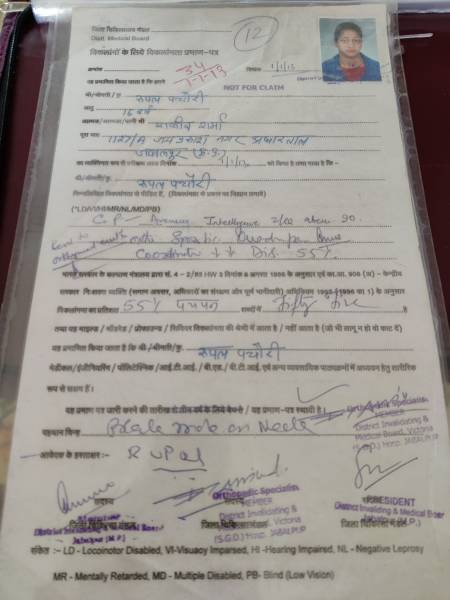 जिला चिकित्सालय मंडल
Distt. Medical Board
12
विकलांगों के लिये विकलांगता प्रमाण-पत्र
क्रमांक 34 दिनांक 1/1/13
1-1-13
यह प्रमाणित किया जाता है कि हमने
NOT FOR CLAIM
श्री/श्रीमती/कु. रूपल पचौरी
आयु 16 वर्ष
आत्मज/आत्मजा/पत्नी श्री शर्मा
पूरा पता 1127/A जय नगर अधारताल
जबलपुर (म.प्र.)
का व्यक्तिगत रूप से परीक्षण आज दिनांक 1/1/13 को किया है तथा पाया है कि -
श्री/श्रीमती/कु. रूपल पचौरी
निम्नलिखित विकलांगता से पीड़ित हैं, (विकलांगता के प्रकार पर निशान लगायें)
(*LD/VI/HI/MR/NL/MD/PB)
C.P. - Average Intelligence above 90.
Spastic
Coordination ++ Dis. 55%
भारत सरकार के कल्याण मंत्रालय द्वारा सं. 4 - 2/83 HW 3 दिनांक 6 अगस्त 1986 के अनुसार एवं का.आ. 908 (अ) - केन्द्रीय
सरकार निःशक्त व्यक्ति (समान अवसर, अधिकारों का संरक्षण और पूर्ण भागीदारी) अधिनियम 1995 (1996 का 1) के अनुसार
विकलांगता का प्रतिशत 55% पचपन शब्दों में Fifty five है।
तथा यह माइल्ड / मॉडरेट / प्रोफाउण्ड / सिवियर विकलांगता की श्रेणी में आता है / नहीं आता है (जो भी लागू न हो वो काट दें)
यह प्रमाणित किया जाता है कि श्री/श्रीमती/कु. रूपल पचौरी
मेडीकल/इंजीनियरिंग / पॉलिटेक्निक /आई.टी.आई. / बी.एड. / पी.टी.आई. एवं अन्य व्यवसायिक पाठ्यक्रमों में अध्ययन हेतु शारीरिक
रूप से सक्षम हैं।
यह प्रमाण पत्र जारी करने की तारीख से तीन वर्ष के लिये वैध है / यह प्रमाण-पत्र स्थायी है।
Orthopedic Specialist
MEMBER
District Invalidating &
Medical Board, Victoria
(S.G.D.) Hosp. JABALPUR
पहचान चिन्ह Black mole on Neck
आवेदक के हस्ताक्षर :- RUPAL
Orthopedic Specialist
सदस्य
MEMBER
PRESIDENT
District Invalidating & Medical Board
जिला चिकित्सा मंडल
Jabalpur (M.P.)
District Invalidating &
Medical Board, Victoria
(S.G.D.) Hosp. JABALPUR
जिला चिकित्सा मंडल
संकेत :- LD - Locoinotor Disabled, VI-Visuaoy Imparsed, HI -Hearing Impaired, NL - Negative Leprosy
MR - Mentally Retarded, MD - Multiple Disabled, PB- Blind (Low Vision)